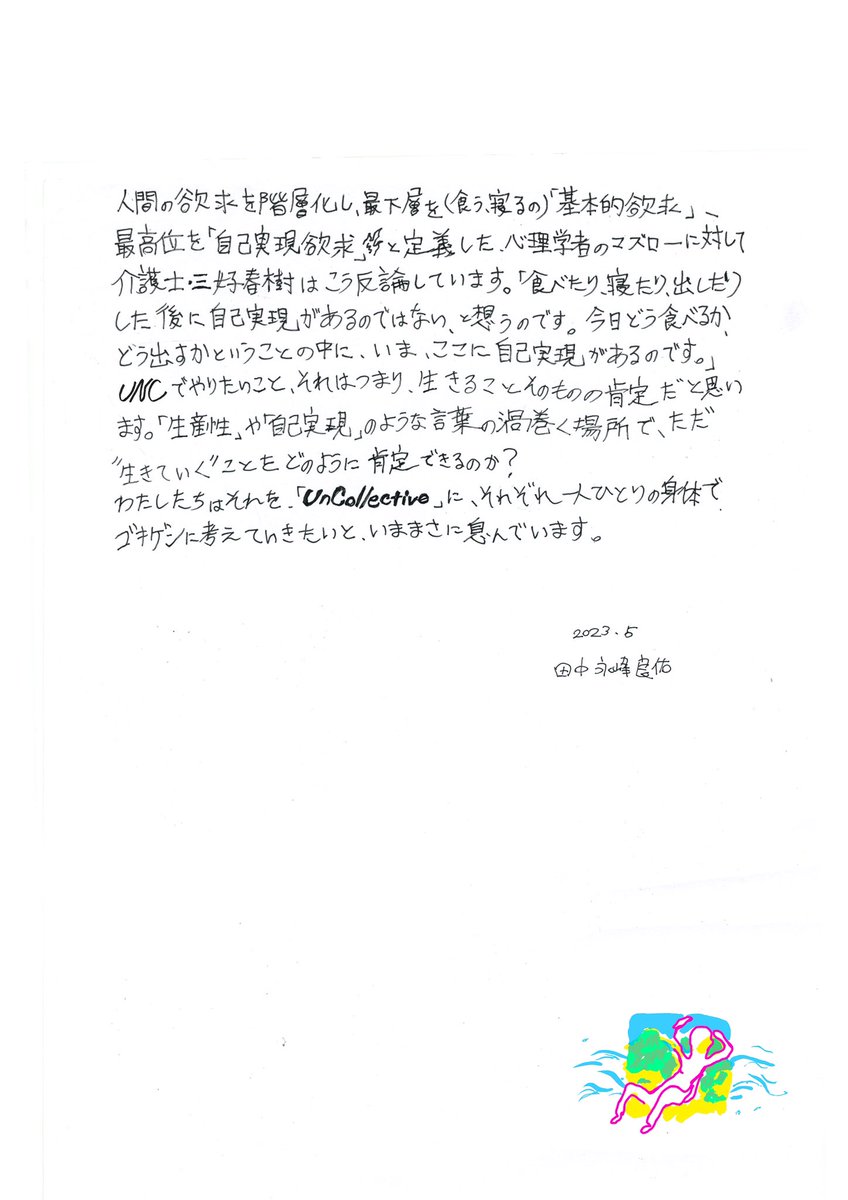 人間の欲求を階層化し、最下層を(食う、寝るの)「基本的欲求」、
最高位を「自己実現欲求」等と定義した、心理学者のマズローに対して
介護士・三好春樹はこう反論しています。「食べたり、寝たり、出したり
した後に自己実現があるのではない、と想うのです。今日どう食べるか、
どう出すかということの中に、いま、ここに自己実現があるのです。」
UNCでやりたいこと、それはつまり、生きることそのものの肯定だと思い
ます。「生産性」や「自己実現」のような言葉の渦巻く場所で、ただ
"生きていく"ことをどのように肯定できるのか?
わたしたちはそれを、「UnCollective」に、それぞれ一人ひとりの身体で
ゴキゲンに考えていきたいと、いままさに息んでいます。
2023.5
田中永峰良佑